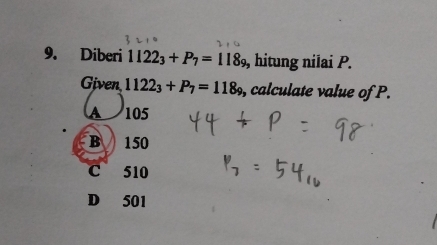 3 2 1 0
2 1 0
9. Diberi 1122₃ + P₇ = 118₉, hitung nilai P.
Given, 1122₃ + P₇ = 118₉, calculate value of P.
A 105
44 + P = 98
B 150
P₇ = 54₁₀
C 510
D 501